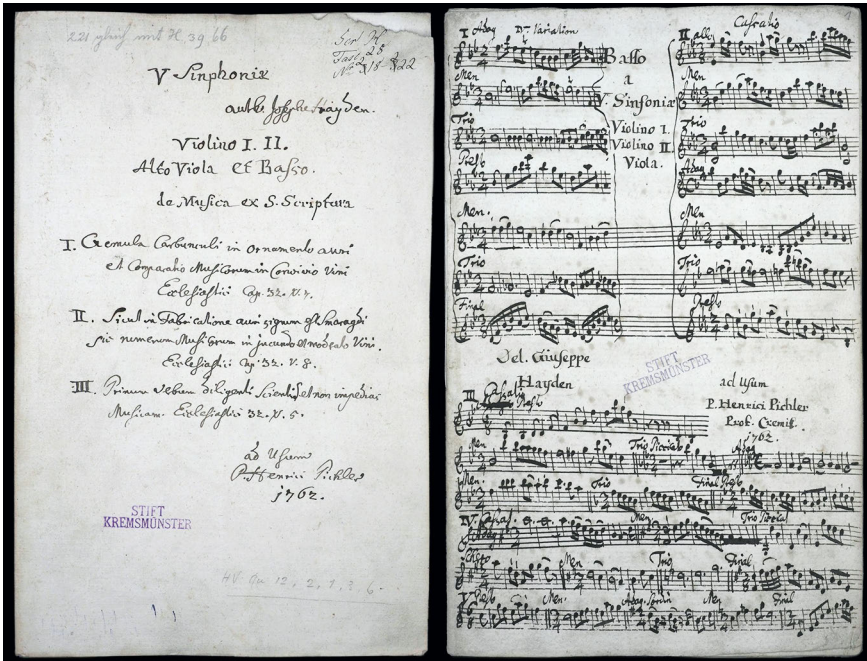 221 gleich mit H, 39 66
V Sinphoniæ
Violino I. II.
Alto Viola et Basso.
de Musica ex S. Scriptura
I. Gemula Carbunculi in ornamento auri
et Comparatio Musicorum in Convivio Vini
Ecclesiastici Cap. 32. V. 7.
II. Sicut in Fabricatione auri signum est smaragdi
sic numerum Musicorum in jucundo et moderato Vini.
Ecclesiastici Cap. 32. V. 8.
III. Primum Verbum diligenti Scientia et non impedias
Musicam. Ecclesiastici 32. V. 5.
ad Usum
P. Henrici Pichler
1762.
STIFT
KREMSMÜNSTER
I Adag Variation
Men
Trio
Presto
Men.
Trio
Final
Basso
a
V. Sinfoniæ
Violino I.
Violino II.
Viola.
II allo Cassatio
Men
Trio
Adag
Men
Trio
Presto
Del. Giuseppe
Hayden
STIFT
KREMSMÜNSTER
ad Usum
P. Henrici Pichler
Prof. Cremif.
1762.
III Cassatio
Presto
Men Trio Adag
Men. Trio Final Presto
IV. Cassat. Men Trio
Men Trio Final
V Presto Men. Men Final